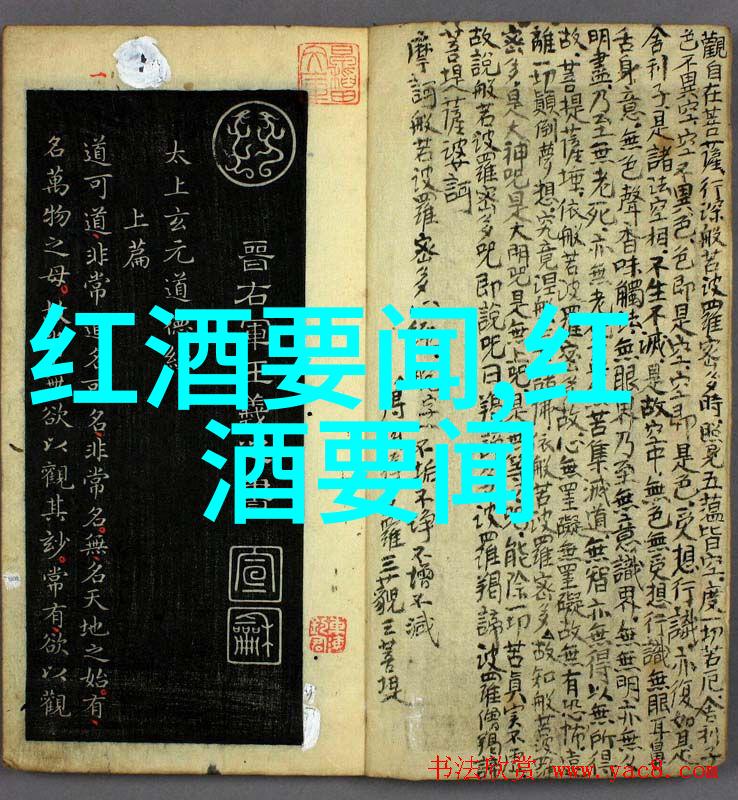 红酒要闻,红
酒要闻
觀自在菩薩行深般若波羅密多時照見五蘊皆空度一切苦厄舍利子
色不異空空不異色色即是空空即是色受想行識亦復如是
舍利子是諸法空相不生不滅是故空中無色無受想行識無眼耳鼻
舌身意無色聲香味觸法無眼界乃至無意識界無無明亦無
明盡乃至無老死亦無老死苦集滅道無智亦無得以無所得
故菩提薩埵依般若波羅密多故心無罣礙無罣礙故無有恐怖遠
離一切顛倒夢想究竟涅槃諸佛依般若波羅密多故知般若波羅
密多是大神咒是大明咒是無上咒是無等等能除一切苦真实不虛
故說般若波羅密多咒即說咒曰羯諦波羅羯諦波羅僧羯諦
菩提薩婆訶
摩訶般若波羅密多不垢不淨不增不減
得羅三藐三菩提
晉右軍王羲之書
宣和
太上玄元道德經
上篇
道可道非常道名可名非常名無名天地之始有
名萬物之母故常無欲以觀其妙常有欲以觀
书法欣赏 www.yac8.com